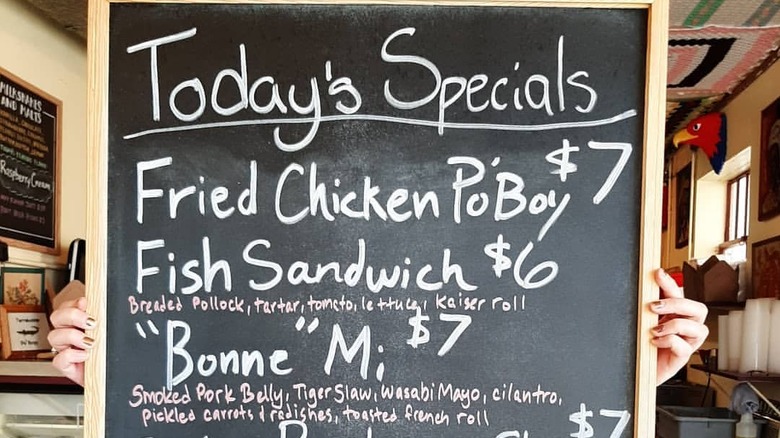 Today's Specials
Fried Chicken Po'Boy $7
Fish Sandwich $6
Breaded Pollock, tartar, tomato, lettuce, Kaiser roll
"Bonne" Mi $7
Smoked Pork Belly, Tiger Slaw, wasabi Mayo, cilantro,
pickled carrots & radishes, toasted french roll
$7
MILKSHAKES
AND MALTS
Raspberry Cream